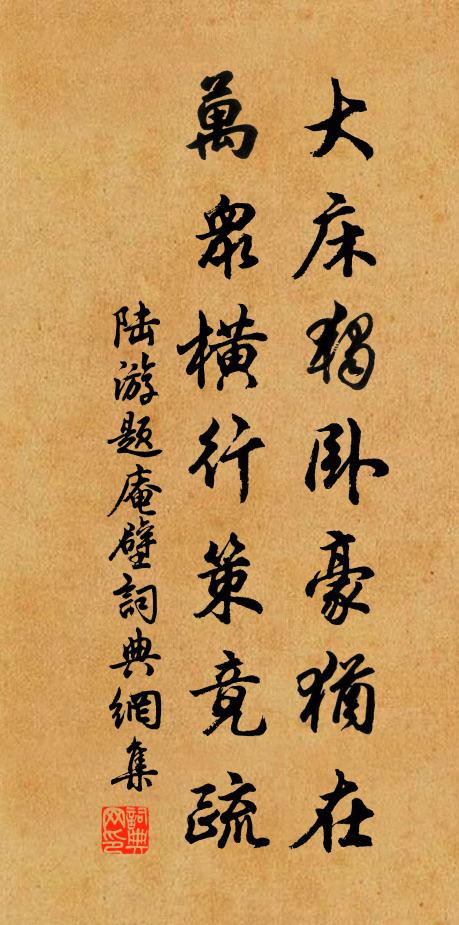 大床独卧豪猶在
萬眾橫行策竟疏
陆游题庵壁詞典網集
詞典网印